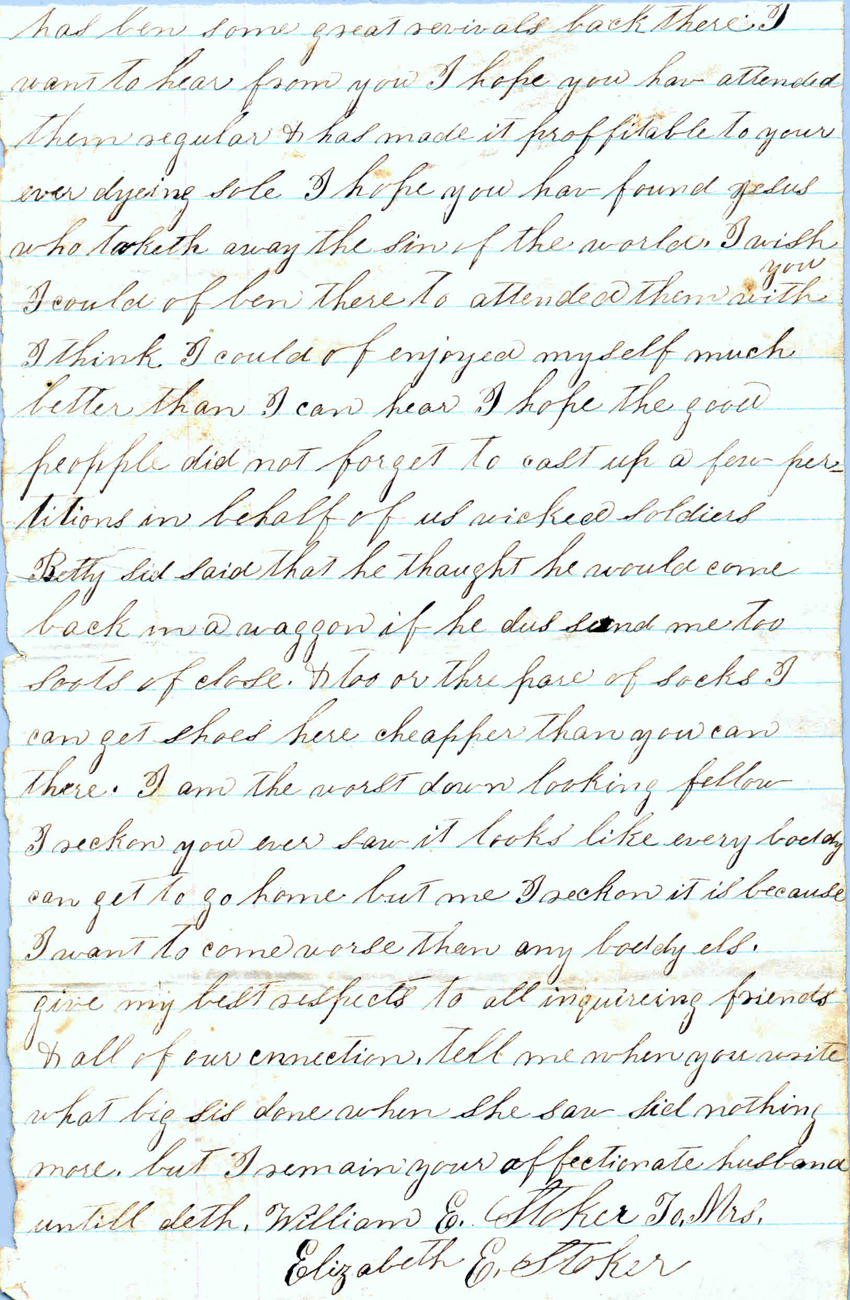 has ben some great revivals back there. I
want to hear from you I hope you hav attended
them regular & has made it proffitable to your
ever dyeing sole I hope you hav found jesus
who taketh away the sin of the world. I wish
you
I could of ben there to attended them with
I think I could of enjoyed myself much
better than I can hear I hope the good
peopple did not forget to cast up a few per=
titions in behalf of us wicked soldiers
Betty sid said that he thaught he would come
back in a waggon if he dus send me too
soots of close. & too or thre pare of socks I
can get shoes here cheapper than you can
there. I am the worst down looking fellow
I reckon you ever saw it looks like every boddy
can get to go home but me I reckon it is because
I want to come worse than any boddy els.
give my best respects to all inquireing friends
& all of our cnnection. tell me when you write
what big sis done when she saw sid nothing
more. but I remain your affectionate husband
untill deth. William E. Stoker To, Mrs.
Elizabeth E. Stoker